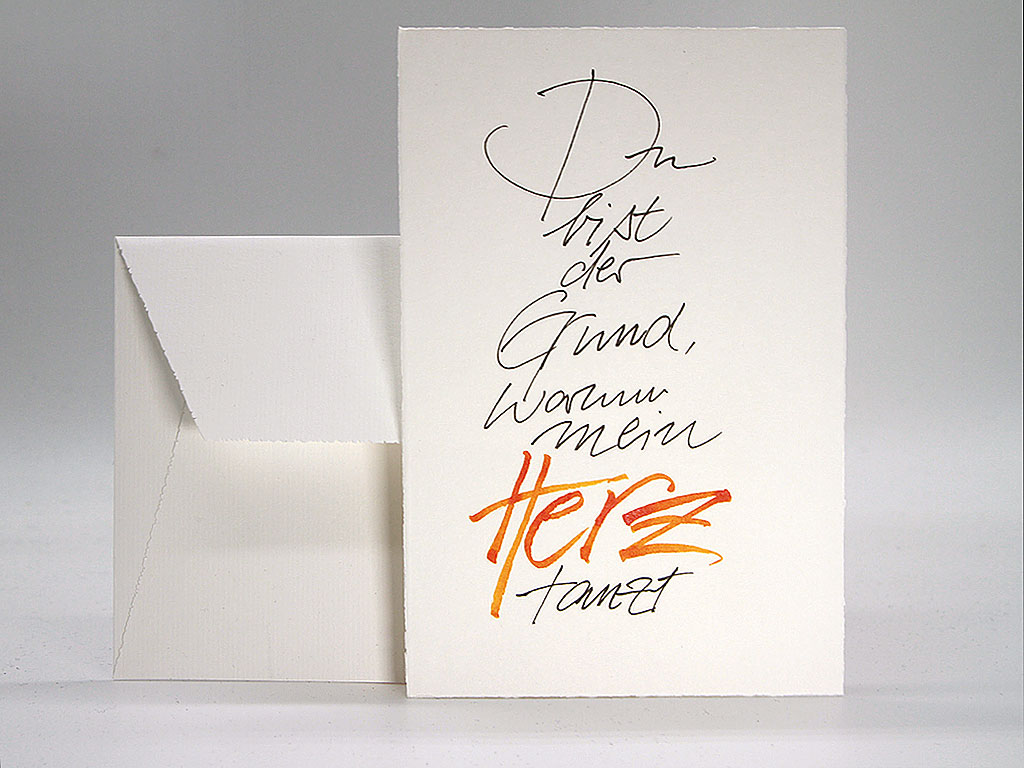 Du
bist
der
Grund,
warum
mein
Herz
tanzt